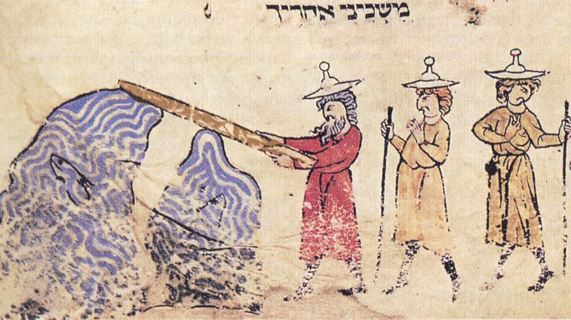 משכיני אחריך